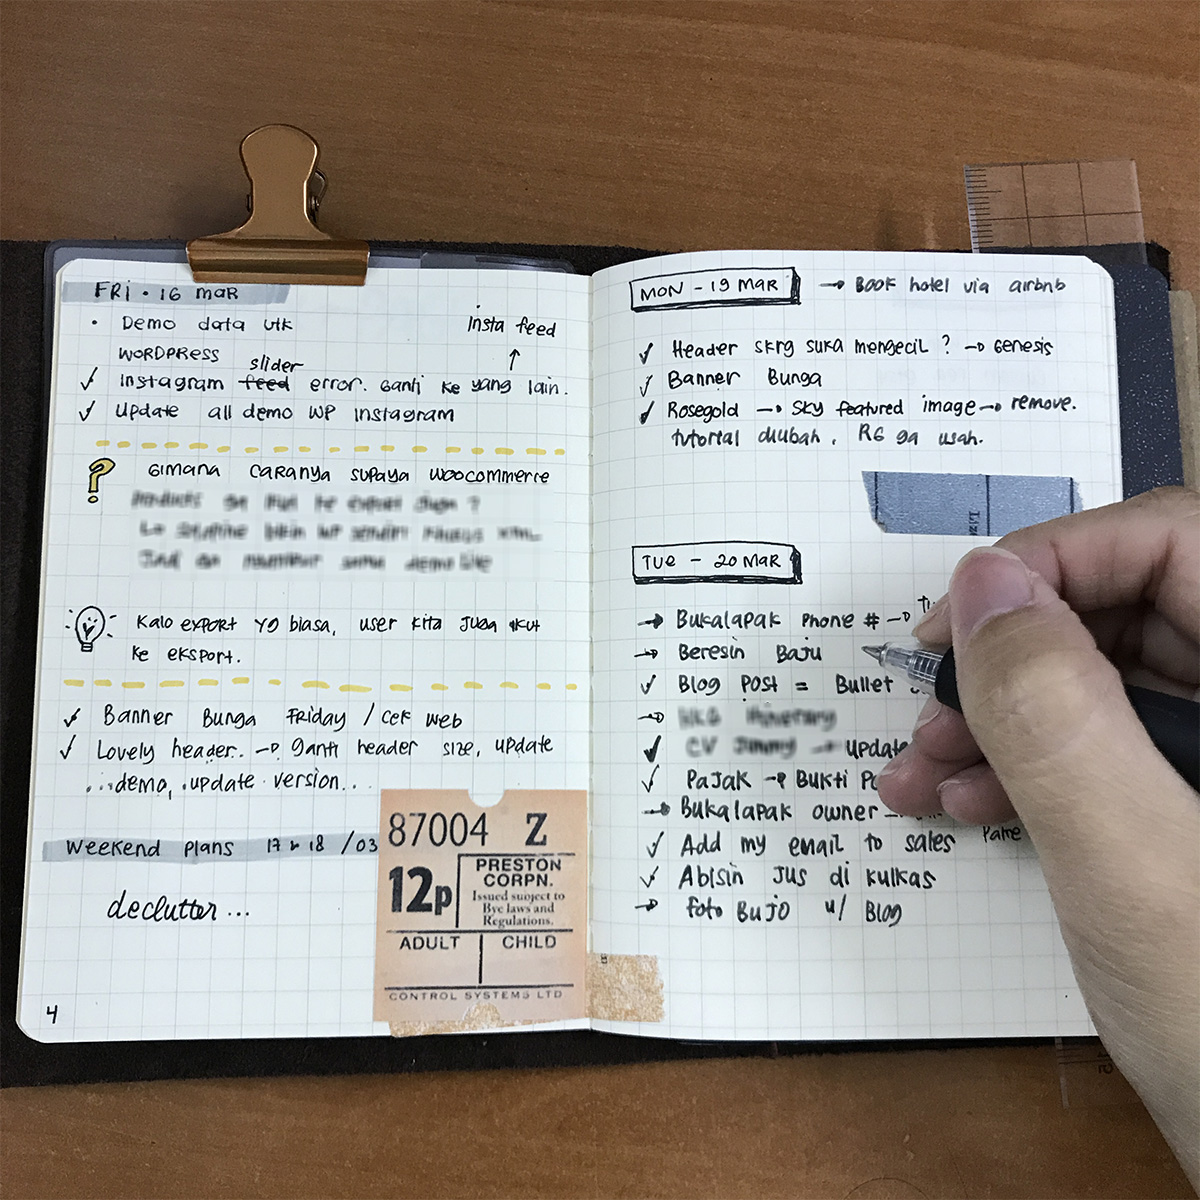 FRI • 16 MAR
• Demo data utk
WORDPRESS
Insta feed
↑
slider
✓ Instagram feed error. Ganti ke yang lain.
✓ Update all demo WP Instagram
? GIMANA CARANYA SUPAYA WOOCOMMERCE
Kalo export yg biasa, user kita juga ikut
ke eksport.
✓ Banner Bunga Friday / cek web
✓ Lovely header. → ganti header size, update
...demo, .update version...
Weekend Plans 17 & 18 /03
declutter...
4
87004 Z
12p
PRESTON
CORPN.
Issued subject to
Bye laws and
Regulations.
ADULT CHILD
CONTROL SYSTEMS LTD
MON - 19 MAR → BOOK hotel via airbnb
✓ Header skrg suka mengecil ? → Genesis
✓ Banner Bunga
✓ Rosegold → Sky featured image → remove.
tutorial diubah, RG ga usah.
TUE - 20 MAR
→ Bukalapak Phone # →
→ Beresin Baju
✓ Blog Post = Bullet
→
✓ CV Jimmy → update
✓ Pajak → Bukti
→ Bukalapak owner
✓ Add my email to sales
✓ Abisin jus di kulkas
→ foto BuJo u/ Blog